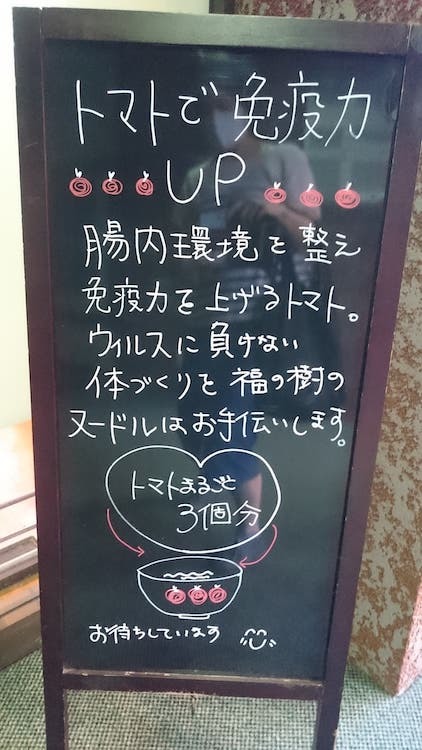 トマトで免疫力
UP
腸内環境を整え
免疫力を上げるトマト。
ウィルスに負けない
体づくりを福の樹の
ヌードルはお手伝いします。
トマトまるごと
3個分
お待ちしています